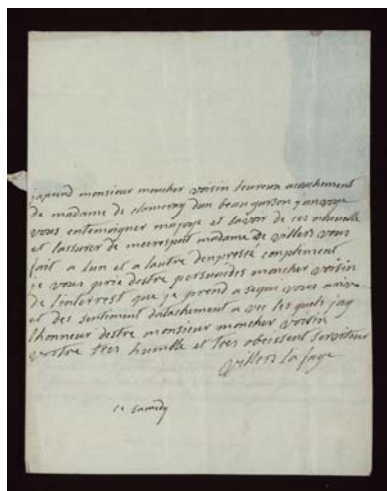 japrend monsieur moncher voisin leureux acouchement
de madame de clameray dun beau garson janvoye
vous entemoigner majoye et savoir de ces nouvelle
et lassurer de mesrespeit madame de villers vous
fait a lun et a lautre denpressé compliment
je vous prie destre persuaides moncher voisin
de linterrest que je prend a sequi vous arive
et des sentiment datachement avec les quels jay
lhonneur destre monsieur moncher voisin
vostre tres humble et tres obeissent serviteur
villers la faye
ce samedy